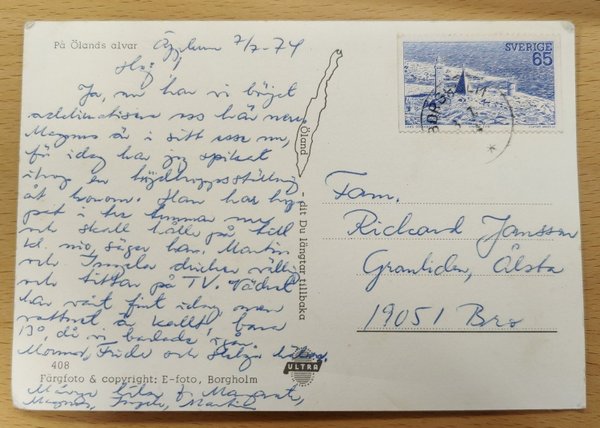 På Ölands alvar
7/7-74
Hej!
Ja, nu har vi börjat
acklimatisera oss här nere.
Magnus är i sitt esse nu,
för idag har jag spikat
ihop en höjdhoppsställning
åt honom. Han har hop-
pat i tre timmar nu
och skall hålla på till
kl. nio, säger han. Martin
och Ingela dricker
och tittar på TV. Vädret
har varit fint idag men
vattnet är kallt, bara
13°, då vi badade igår.
Mormor, och hälsar
408
Färgfoto & copyright: E-foto, Borgholm
Många fr Margareta,
Magnus, Ingela, Martin
Öland - dit Du längtar tillbaka
ULTRA
SVERIGE
65
Fam.
Rickard Jansson
Granliden, Ålsta
19051 Bro